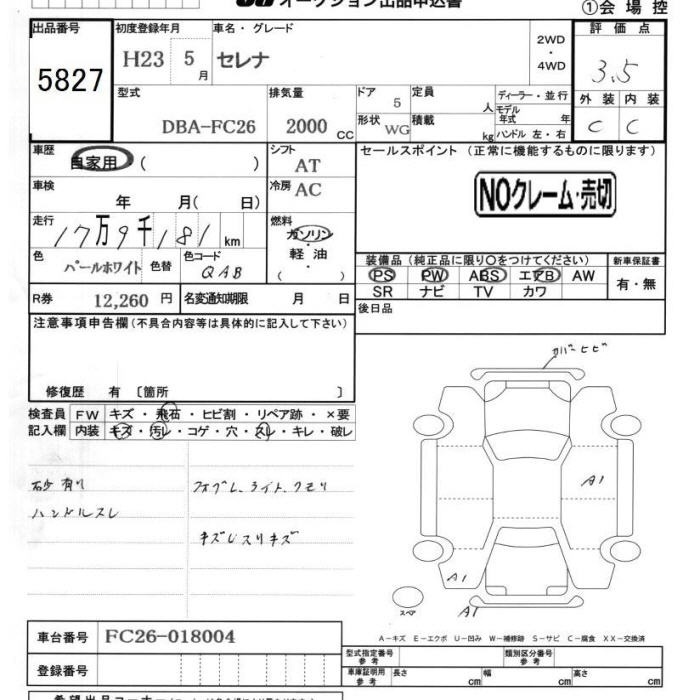 オークション出品申込書
①会場控
出品番号 初度登録年月 車名・グレード 評価点
5827 H23 5月 セレナ 2WD・4WD 3.5
型式 排気量 ドア 定員 ディーラー・並行 外装 内装
DBA-FC26 2000CC 5 人 モデル年式 年 C C
形状 WG 積載 kg ハンドル 左・右
車歴 シフト セールスポイント(正常に機能するものに限ります)
自家用 ( ) AT
車検 冷房 NOクレーム・売切
年 月( 日) AC
走行 燃料
17万9千181km ガソリン
軽油
( )
色 色替 色コード 装備品(純正品に限り○をつけてください) 新車保証書
パールホワイト QAB PS PW ABS エアB AW 有・無
SR ナビ TV カワ
R券 12,260円 名変通知期限 月 日 後日品
注意事項申告欄(不具合内容等は具体的に記入して下さい)
カバーヒビ
修復歴 有 〔箇所 〕
検査員 FW キズ・飛石・ヒビ割・リペア跡・×要
記入欄 内装 キズ・汚レ・コゲ・穴・スレ・キレ・破レ
A1
砂有り
ハンドルスレ
A1
スペア A1
A−キズ E−エクボ U−凹み W−補修跡 S−サビ C−腐食 XX−交換済
車台番号 FC26-018004
型式指定番号 参考 類別区分番号 参考
登録番号 車庫証明用 参考 長さ cm 幅 cm 高さ cm